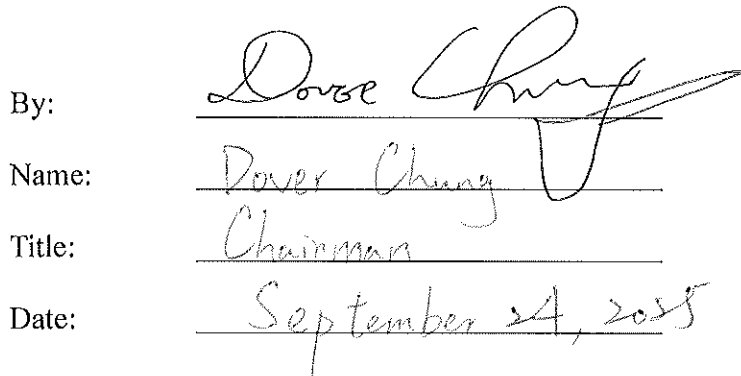 By: Dover Chung
Name: Dover Chung
Title: Chairman
Date: September 24, 2025